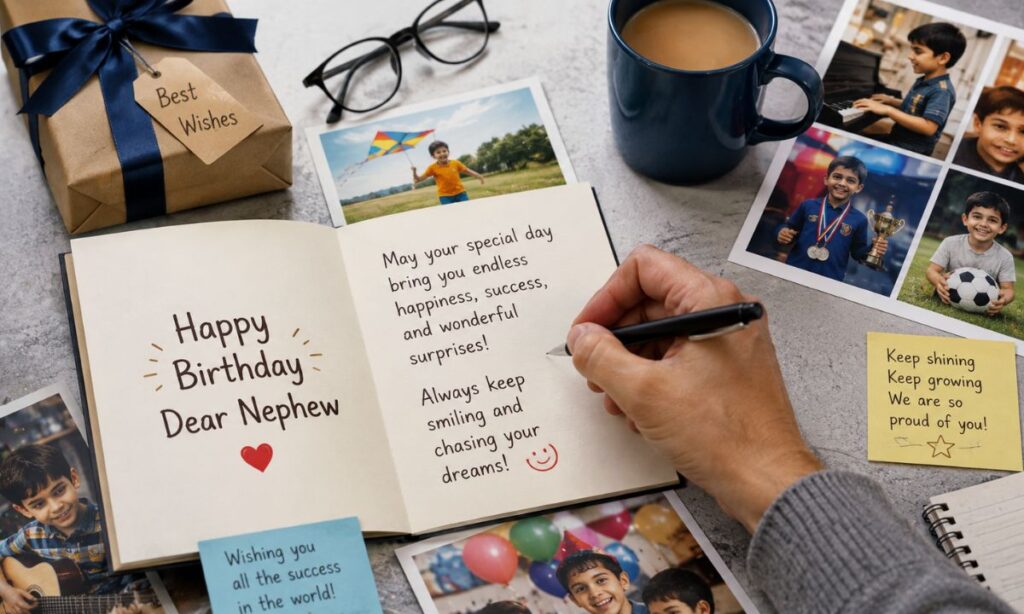 Best
Wishes
Happy
Birthday
Dear Nephew
May your special day
bring you endless
happiness, success,
and wonderful
surprises!
Always keep
smiling and
chasing your
dreams!
Keep shining
Keep growing
We are so
proud of you!
Wishing you
all the success
in the world!